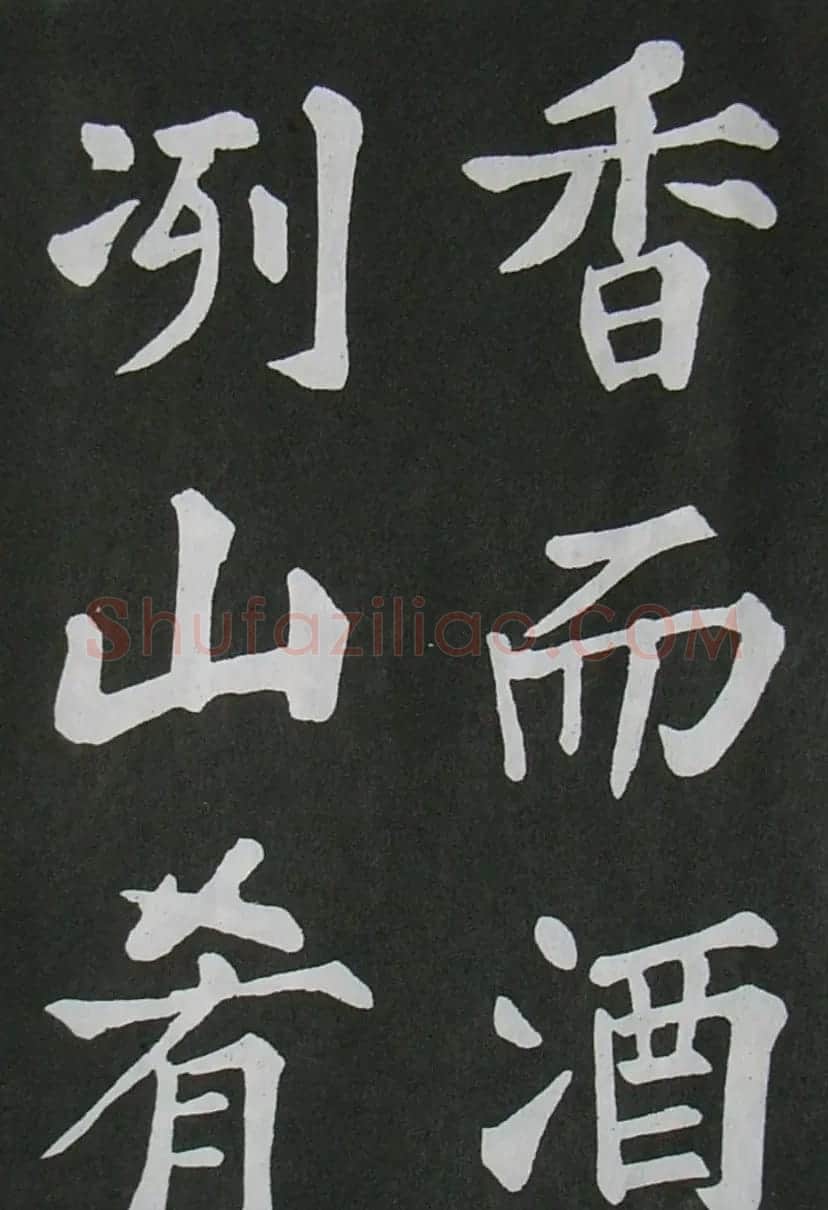 香而酒
冽山肴
Shufaziliao.COM